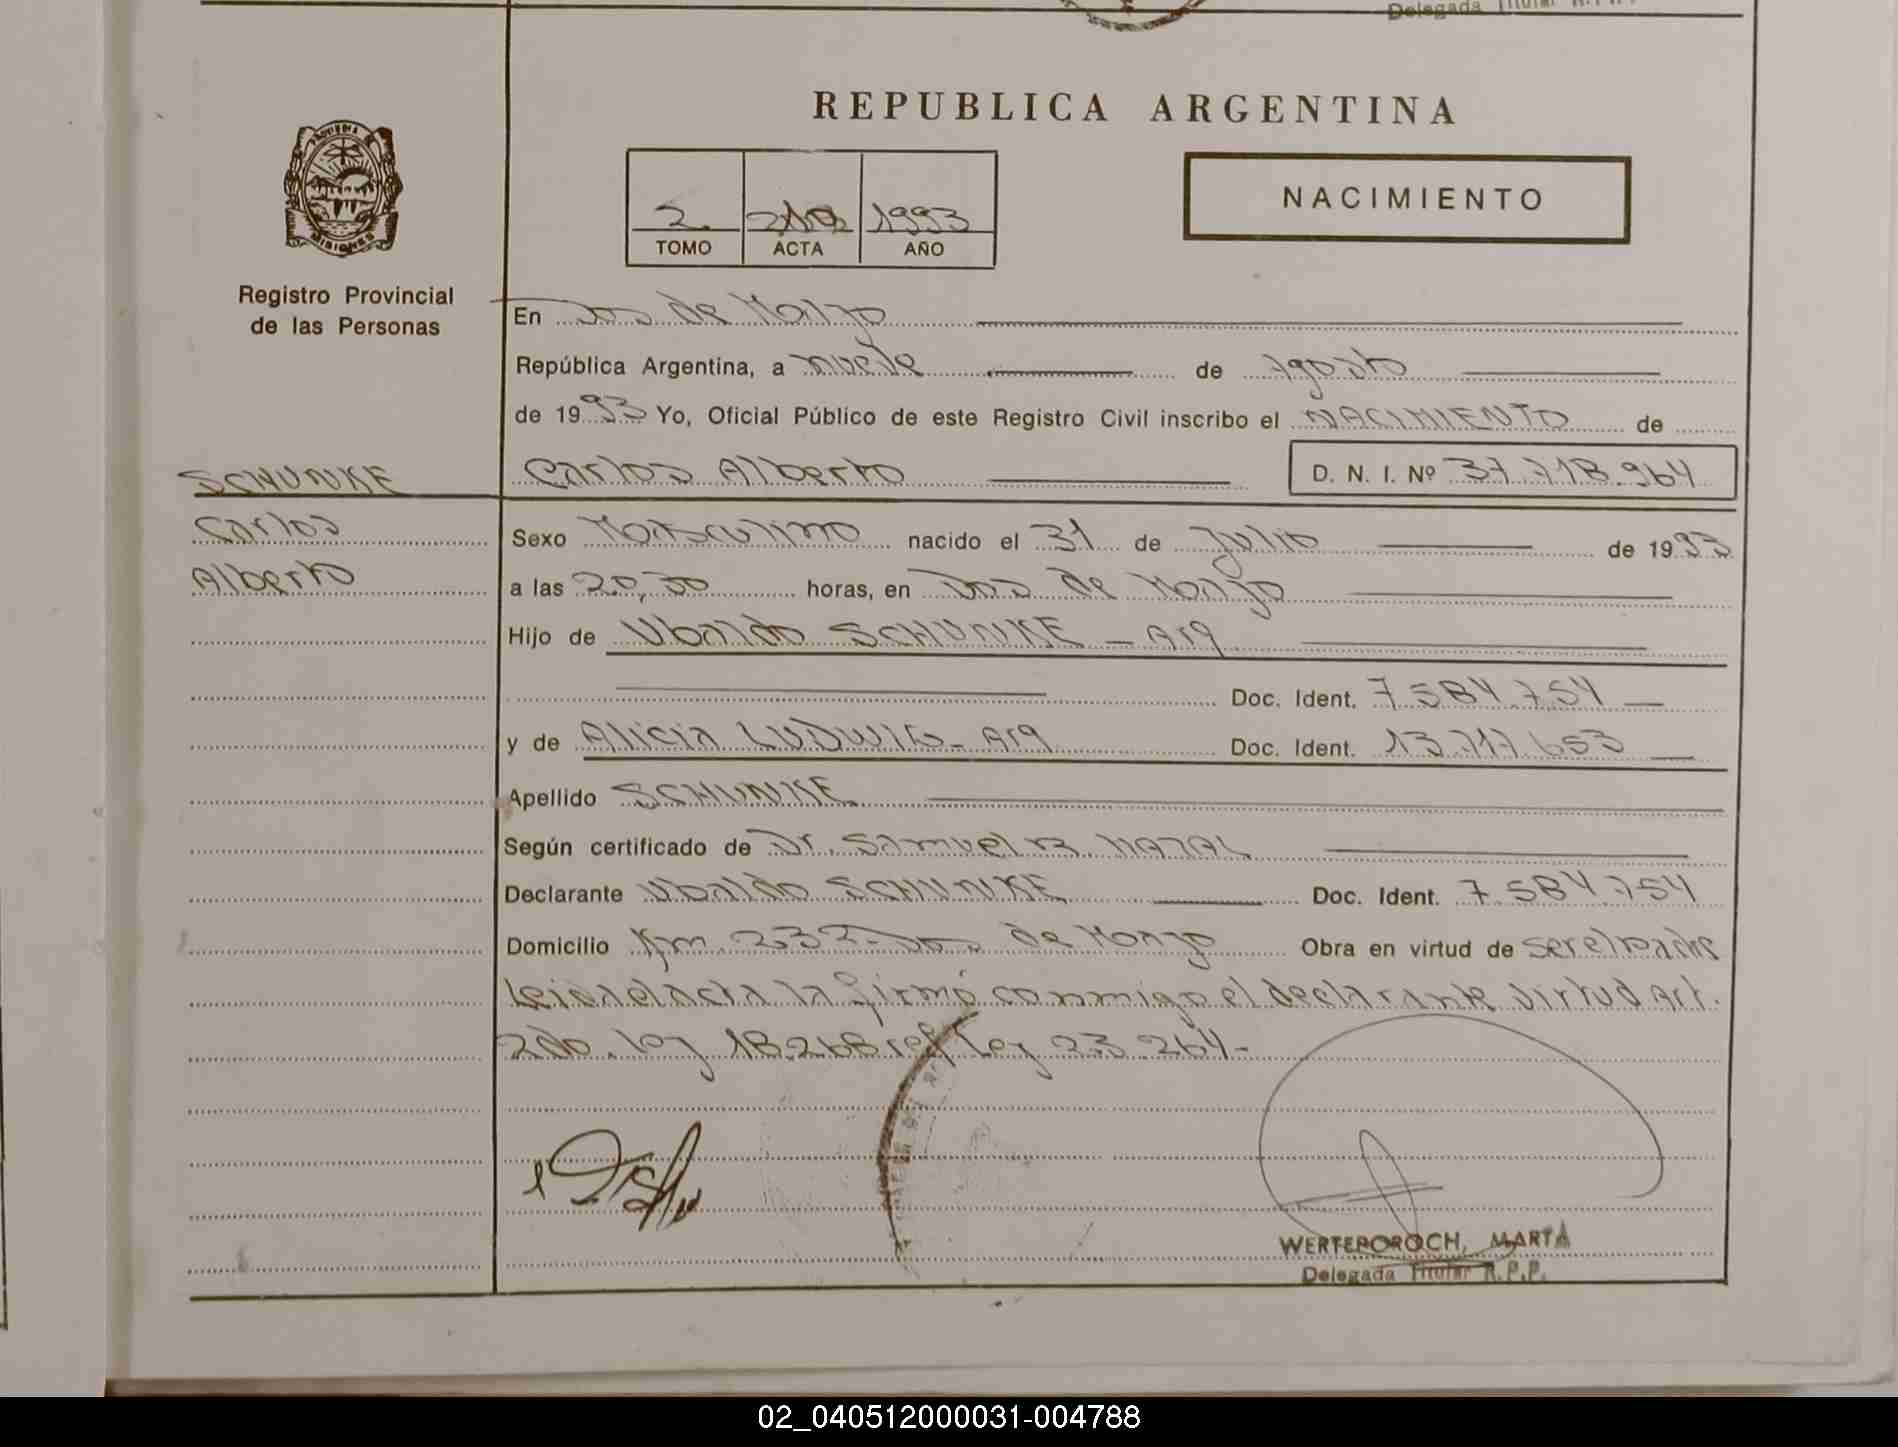 Delegada Titular R.P.P.
REPUBLICA ARGENTINA
PROVINCIA DE
MISIONES
Registro Provincial
de las Personas
2.
1993
TOMO ACTA AÑO
NACIMIENTO
En Dos de Mayo
República Argentina, a nueve de Agosto
de 1993 Yo, Oficial Público de este Registro Civil inscribo el NACIMIENTO de
SCHUNKE
Carlos Alberto D. N. I. Nº 37.718.964
Carlos
Alberto
Sexo Masculino nacido el 31 de Julio de 1993
a las 20,30 horas, en Dos de Mayo
Hijo de Ubaldo SCHUNKE - Arg
Doc. Ident. 7.584.754
y de Alicia LUDWIG - Arg Doc. Ident. 13.717.653
Apellido SCHUNKE
Según certificado de Dr. Samuel
Declarante Ubaldo SCHUNKE Doc. Ident. 7.584.754
Domicilio Km. 232 - Dos de Mayo Obra en virtud de ser el padre
Leida el acta la firmó conmigo el declarante virtud Art.
2do. ley 18.248 ref Ley 23.264-
WERTEPOROCH, MARTA
Delegada Titular R.P.P.
02_040512000031-004788